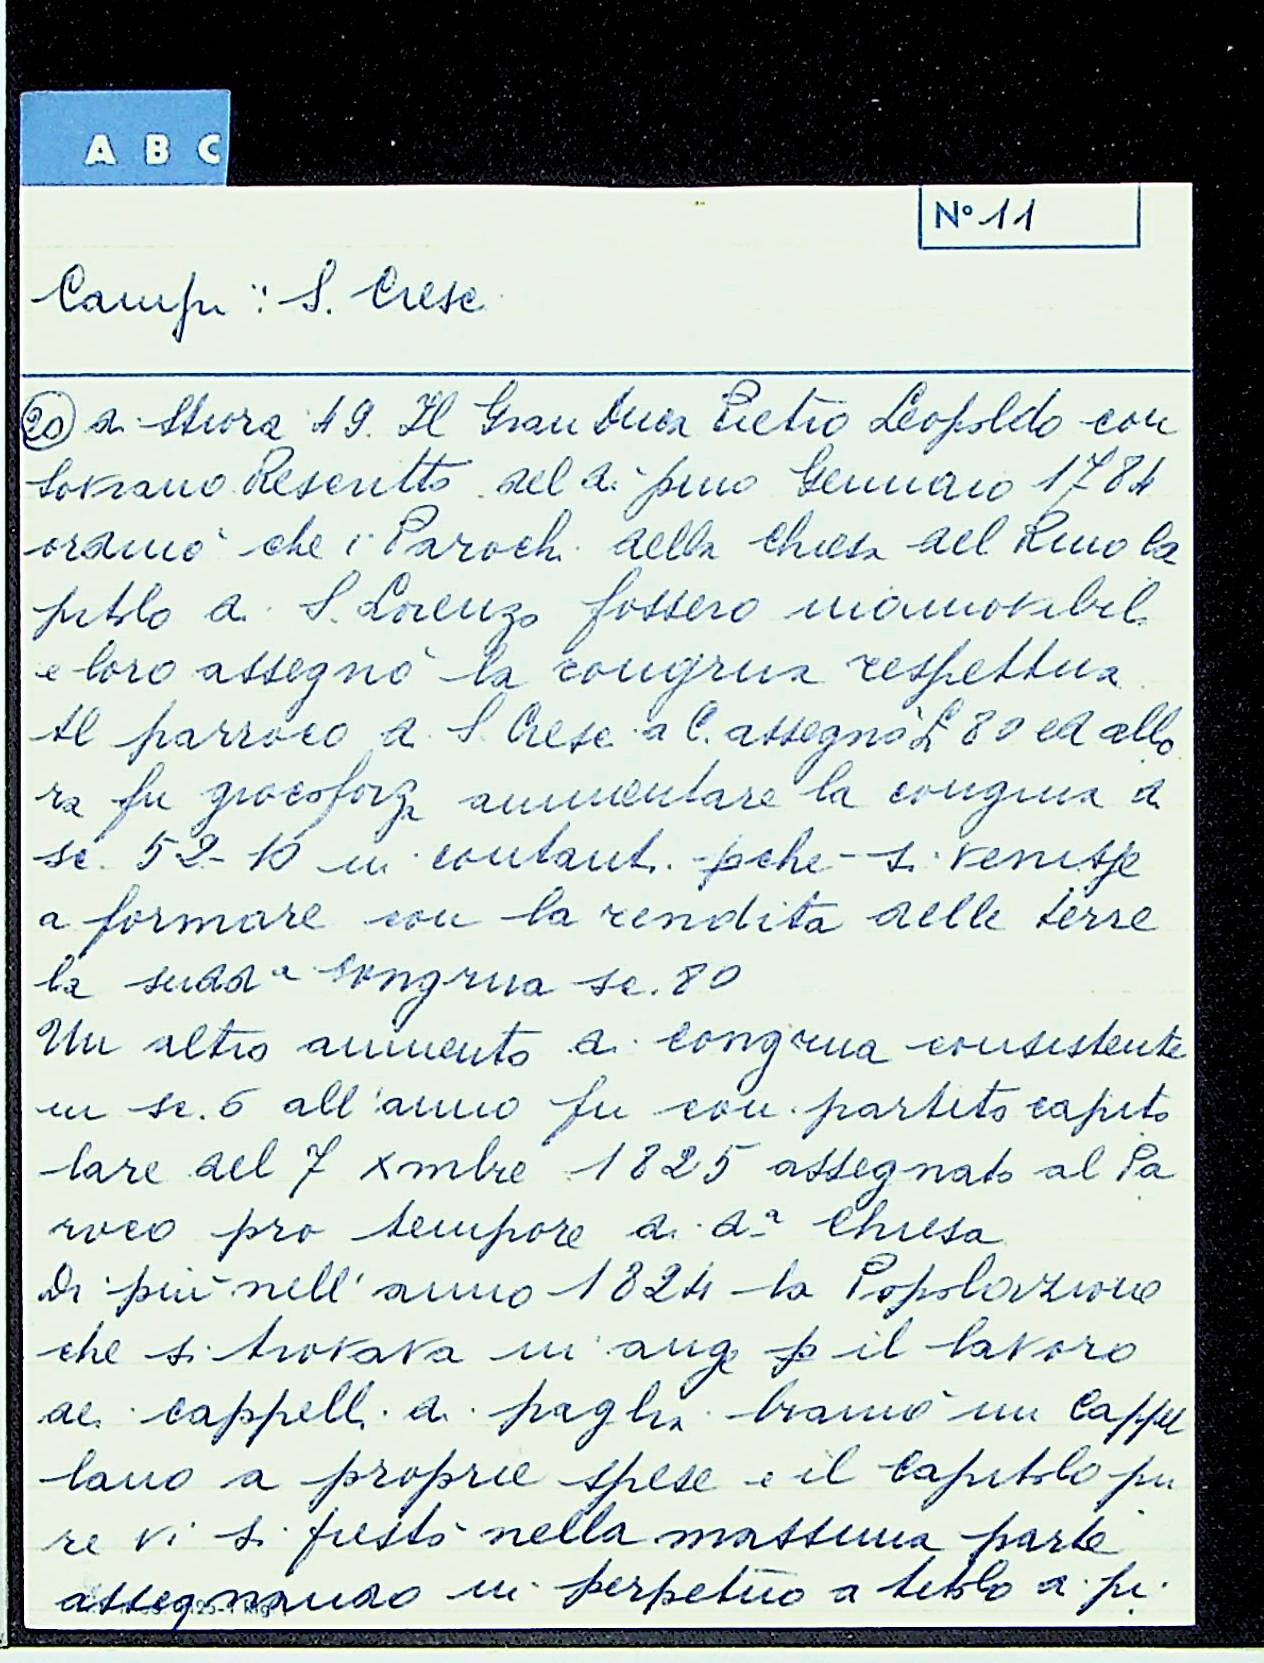 A B C
N° 11
Campi: S. Cresc
20 di stiora 49. Il Gran Duca Pietro Leopoldo con
Sovrano Rescritto del dì pmo Gennaio 1784
ordinò che i Parochi della chiesa del Rmo Ca
pitolo di S. Lorenzo fossero inamovibili
e loro assegnò la congrua respettiva
Al parroco di S. Cresc a C. assegnò £ 80 ed allo
ra fu giocoforza aumentare la congrua di
sc. 52-10 in contanti pche si venisse
a formare con la rendita delle terre
la suddª congrua sc. 80
Un altro aumento di congrua consistente
in sc. 6 all'anno fu con partito capito
lare del 7 Xmbre 1825 assegnato al Pa
roco pro tempore di dª Chiesa
Di più nell'anno 1824 la Popolazione
che si trovava in auge p il lavoro
dei cappelli di paglia bramò un Cappel
lano a proprie spese e il Capitolo pu
re vi si prestò nella massima parte
assegnando in perpetuo a titolo di pi